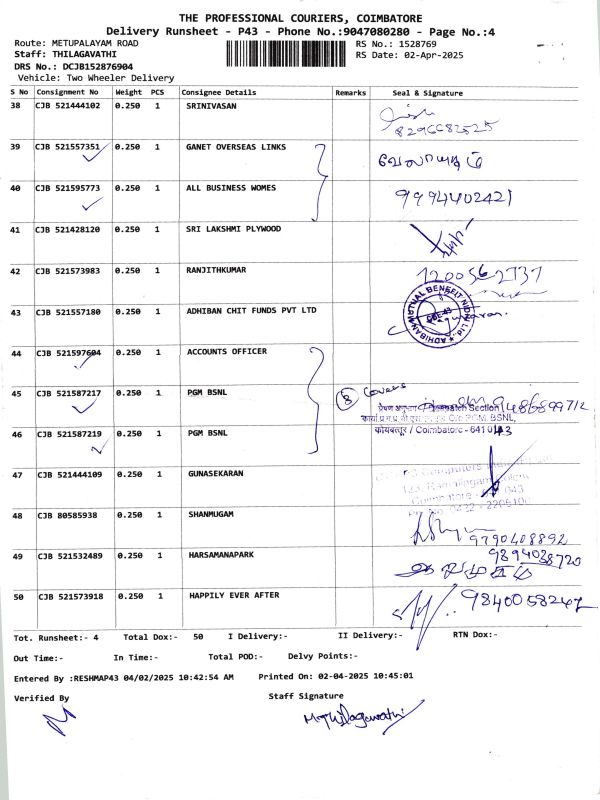 THE PROFESSIONAL COURIERS, COIMBATORE
Delivery Runsheet - P43 - Phone No.:9047080280 - Page No.:4
Route: METUPALAYAM ROAD RS No.: 1528769
Staff: THILAGAVATHI RS Date: 02-Apr-2025
DRS No.: DCJB152876904
Vehicle: Two Wheeler Delivery
S No Consignment No Weight PCS Consignee Details Remarks Seal & Signature
38 CJB 521444102 0.250 1 SRINIVASAN
8296682525
39 CJB 521557351 0.250 1 GANET OVERSEAS LINKS வேலாயுதம்
40 CJB 521595773 0.250 1 ALL BUSINESS WOMES 9994402421
41 CJB 521428120 0.250 1 SRI LAKSHMI PLYWOOD
42 CJB 521573983 0.250 1 RANJITHKUMAR 1200562737
43 CJB 521557180 0.250 1 ADHIBAN CHIT FUNDS PVT LTD
44 CJB 521597604 0.250 1 ACCOUNTS OFFICER
45 CJB 521587217 0.250 1 PGM BSNL 8 Covers
9486899712
46 CJB 521587219 0.250 1 PGM BSNL कोयंबत्तूर / Coimbatore - 641 043
47 CJB 521444109 0.250 1 GUNASEKARAN
48 CJB 80585938 0.250 1 SHANMUGAM 9790408892
49 CJB 521532489 0.250 1 HARSAMANAPARK 9894038720
50 CJB 521573918 0.250 1 HAPPILY EVER AFTER 9840058247
Tot. Runsheet:- 4 Total Dox:- 50 I Delivery:- II Delivery:- RTN Dox:-
Out Time:- In Time:- Total POD:- Delvy Points:-
Entered By :RESHMAP43 04/02/2025 10:42:54 AM Printed On: 02-04-2025 10:45:01
Verified By Staff Signature
M.Thilagavathi